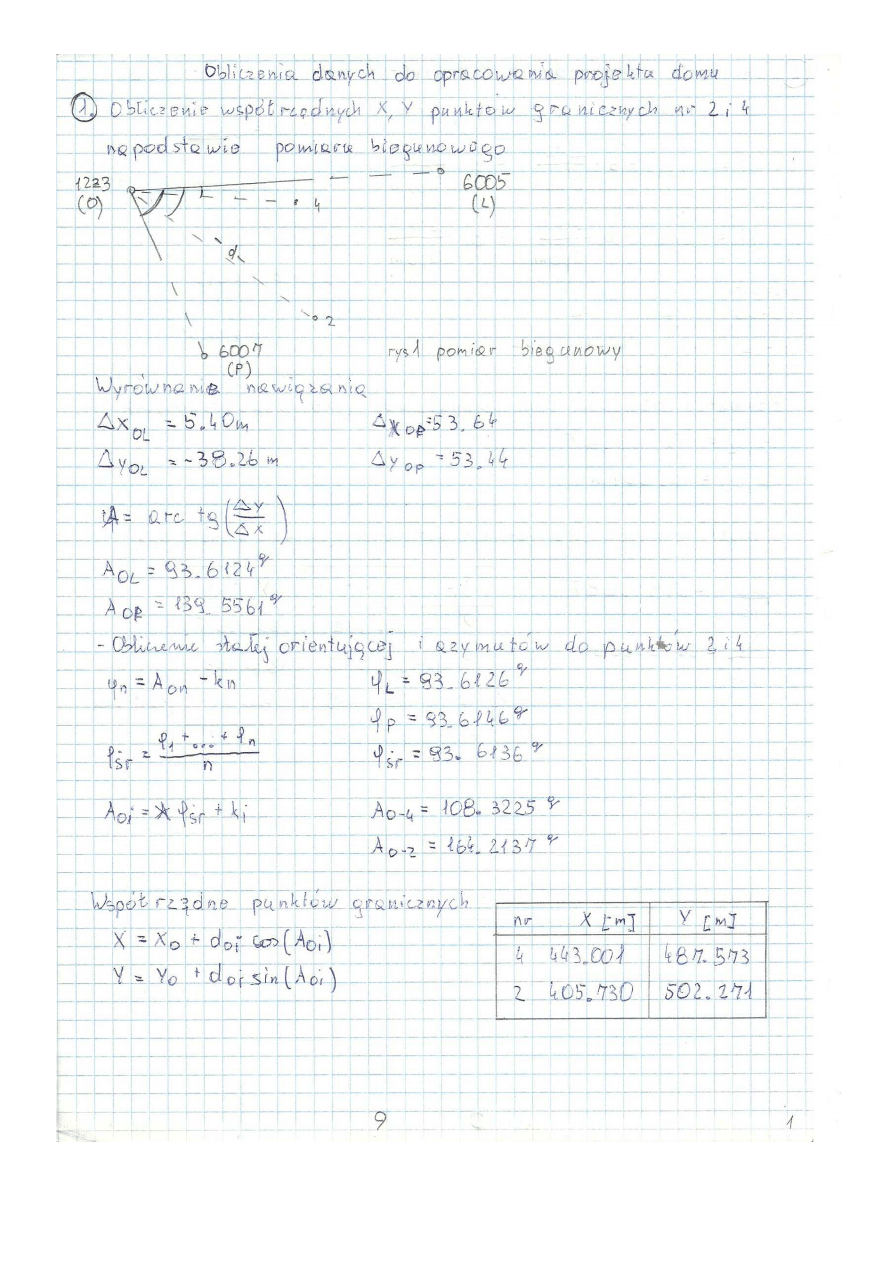 Obliczenia danych do opracowania projektu domu
1. Obliczenie współrzędnych X, Y punktów granicznych nr 2 i 4
na podstawie pomiaru biegunowego
1223 6005
(O) 4 (L)
d
2
6007 rys 1 pomiar biegunowy
(P)
Wyrównanie nawiązania
ΔX_OL = 5.40m ΔX_OP = 53.64
ΔY_OL = -38.26 m ΔY_OP = 53.44
A = arc tg (ΔY/ΔX)
A_OL = 93.6124^g
A_OP = 139.5561^g
- Obliczenie stałej orientującej i azymutów do punktów 2 i 4
φn = A_on - kn φL = 93.6126^g
φP = 93.6146^g
φśr = (φ1 + ... + φn)/n φśr = 93.6136^g
A_oi = φśr + ki A_0-4 = 108.3225^g
A_0-2 = 164.2137^g
Współrzędne punktów granicznych
X = X_O + d_oi cos(A_oi)
Y = Y_O + d_oi sin(A_oi)
nr X [m] Y [m]
4 443.001 487.573
2 405.730 502.271
9 1